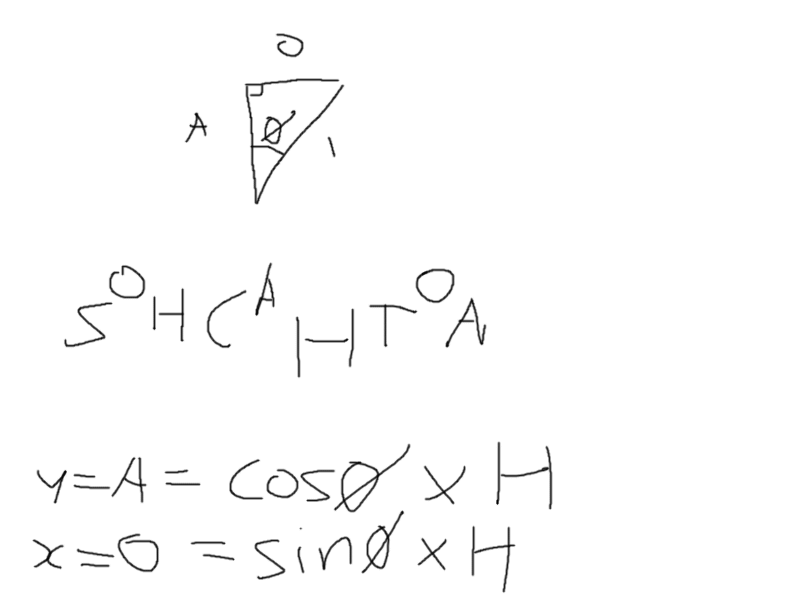 O
A Ø 1
SOH CAH TOA
y=A= cosØ x H
x=O = sinØ x H